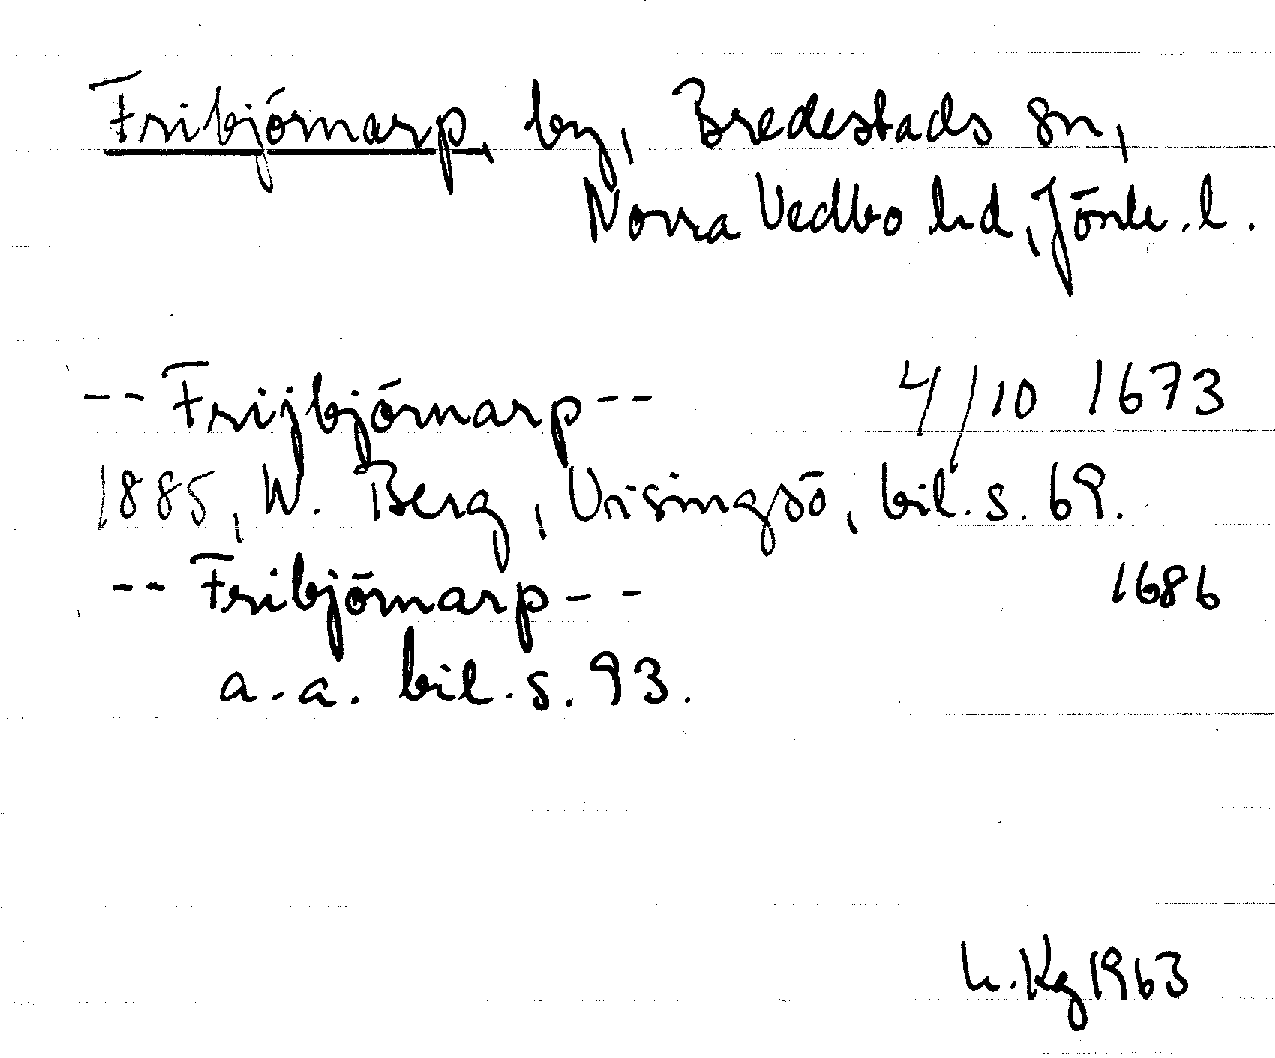 Fribjörnarp, by, Bredestads sn,
Norra Vedbo hd, Jönk. l.
-- Frijbjörnarp -- 4/10 1673
1885, W. Berg, Visingsö, bil. s. 69.
-- Fribjörnarp -- 1686
a.a. bil. s. 93.
h. Kg 1963